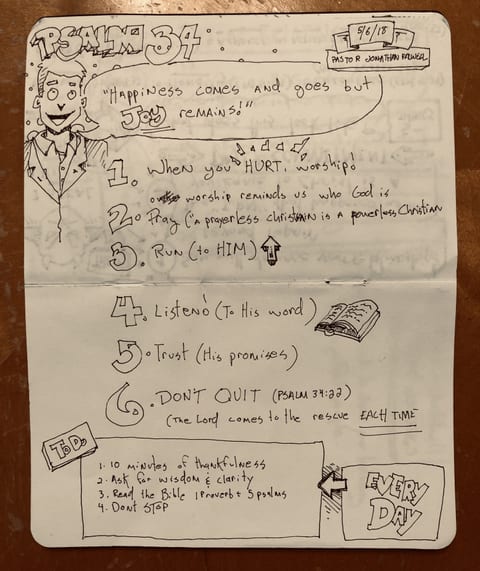 PSALM 34
5/6/18
PASTOR JONATHAN
"HAPPINESS COMES AND GOES but
JOY REMAINS!"
1. When you HURT, worship!
worship reminds us who God is
2. Pray ("A prayerless christian is a powerless Christian
3. RUN (to HIM)
4. Listen! (To His word)
5. Trust (His promises)
6. DON'T QUIT (PSALM 34:22)
(The Lord comes to the rescue EACH TIME
To Do
1. 10 minutes of thankfulness
2. Ask for wisdom & clarity
3. Read the Bible 1 Proverb + 5 psalms
4. Dont STOP
EVERY
DAY